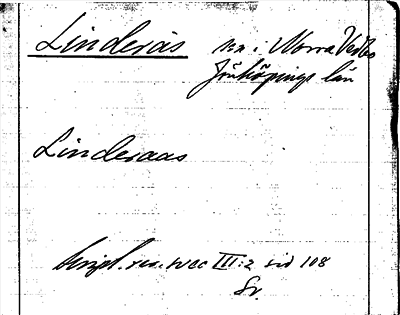 Linderås sn. i Norra Vedbo
Jönköpings län
Linderaas
Script. rer. svec III:2 sid 108
Sv.